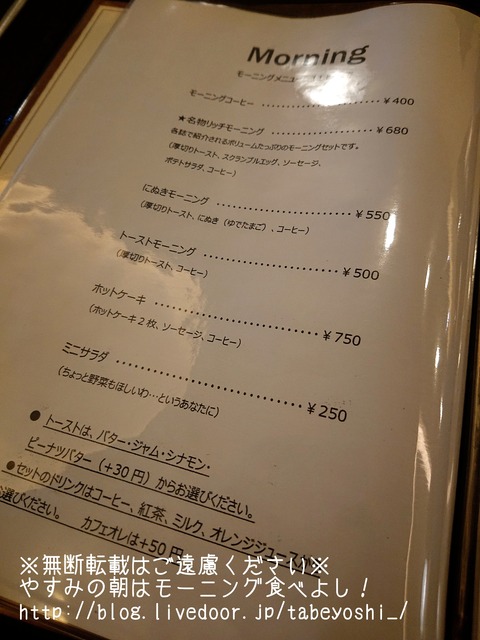 Morning
モーニングメニュー
モーニングコーヒー ………………… ￥400
★名物リッチモーニング ………………… ￥680
各誌で紹介されるボリュームたっぷりのモーニングセットです。
(厚切りトースト、スクランブルエッグ、ソーセージ、
ポテトサラダ、コーヒー)
にぬきモーニング ………………… ￥550
(厚切りトースト、にぬき(ゆでたまご)、コーヒー)
トーストモーニング ………………… ￥500
(厚切りトースト、コーヒー)
ホットケーキ ………………… ￥750
(ホットケーキ2枚、ソーセージ、コーヒー)
ミニサラダ ………………… ￥250
(ちょっと野菜もほしいわ…というあなたに)
● トーストは、バター・ジャム・シナモン・
ピーナツバター(+30円)からお選びください。
●セットのドリンクはコーヒー、紅茶、ミルク、オレンジジュース
お選びください。 カフェオレは+50円
※無断転載はご遠慮ください※
やすみの朝はモーニング食べよし！
http://blog.livedoor.jp/tabeyoshi_/